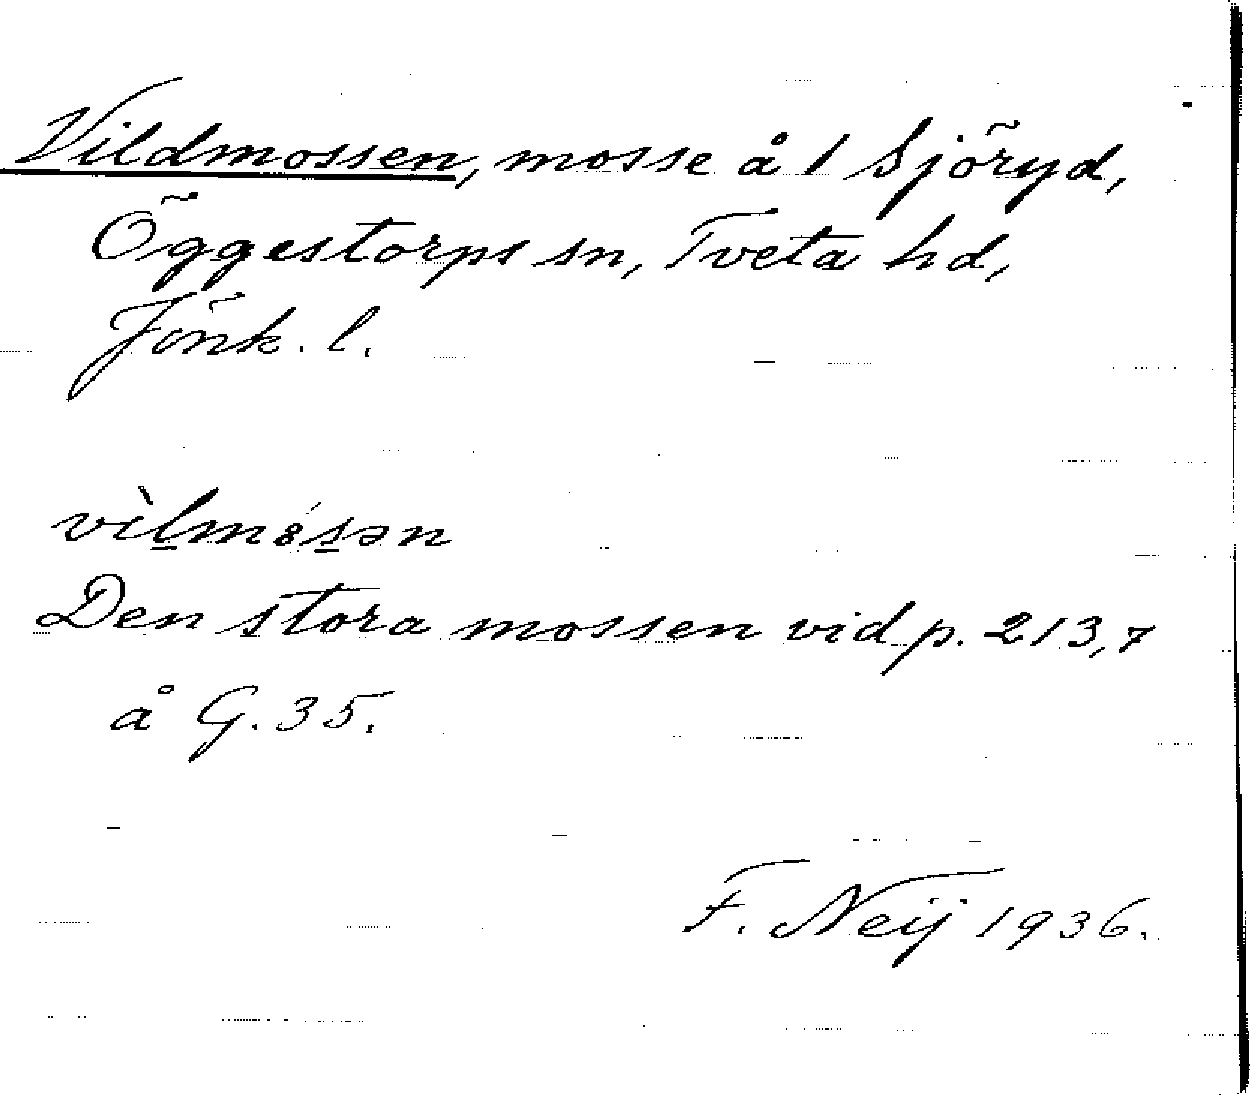 Vildmossen, mosse å 1 Sjöryd,
Öggestorps sn, Tveta hd,
Jönk. l.
Den stora mossen vid p. 213,7
å G. 35.
F. Neij 1936.